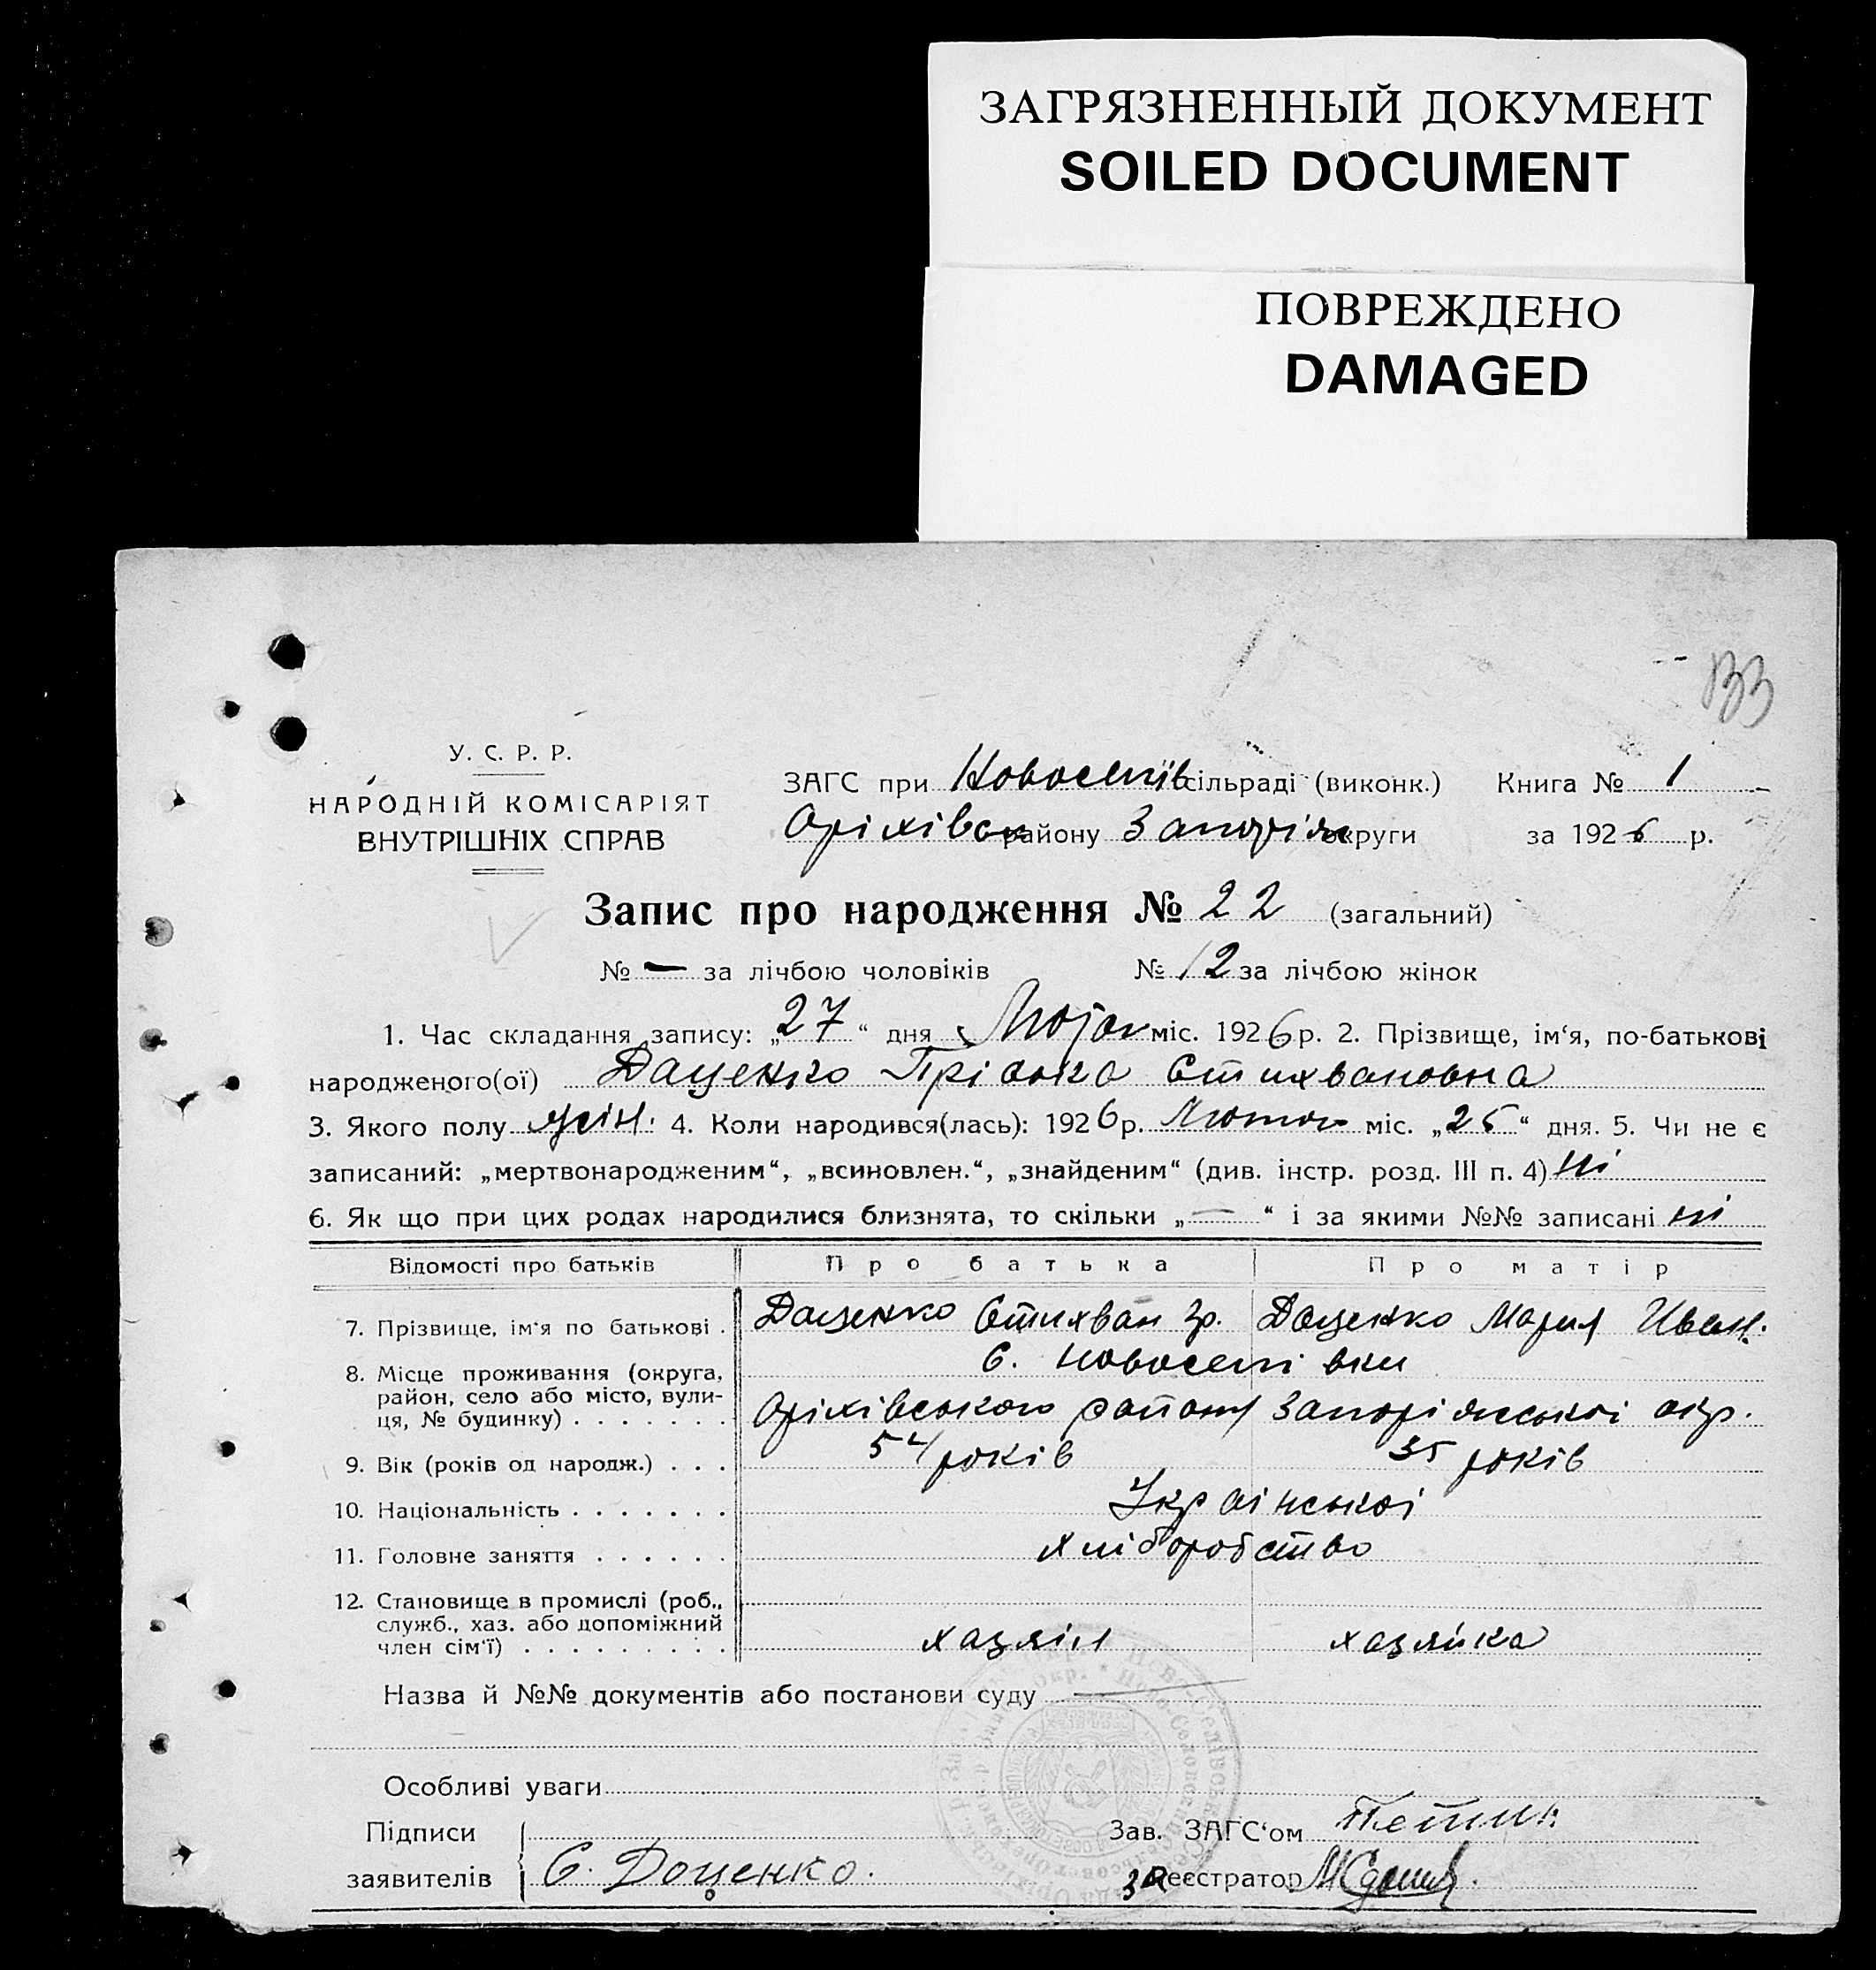 ЗАГРЯЗНЕННЫЙ ДОКУМЕНТ
SOILED DOCUMENT
ПОВРЕЖДЕНО
DAMAGED
133
У. С. Р. Р.
НАРОДНІЙ КОМІСАРІЯТ
ВНУТРІШНІХ СПРАВ
ЗАГС при Новоселів сільраді (виконк.) Книга № 1
Оріхівськ району Запоріж округи за 1926 р.
Запис про народження № 22 (загальний)
№ — за лічбою чоловіків № 12 за лічбою жінок
1. Час складання запису: „27“ дня міс. 1926 р. 2. Прізвище, ім‘я, по-батькові
народженого(ої) Даценко Стихвановна
3. Якого полу жін. 4. Коли народився(лась): 1926 р. Лютого міс. „25“ дня. 5. Чи не є
записаний: „мертвонародженим“, „всиновлен.“, „знайденим“ (див. інстр. розд. III п. 4) ні
6. Як що при цих родах народилися близнята, то скільки „—“ і за якими №№ записані ні
Відомості про батьків Про батька Про матір
7. Прізвище, ім‘я по батькові . Даценко Стихван Гр. Даценко Мария Иван.
8. Місце проживання (округа, С. Новоселівки
район, село або місто, вули-
ця, № будинку) . . . . . . . Оріхівського району Запоріжської окр.
9. Вік (років од народж.) . . . років 35 років
10. Національність . . . . . . . Української
11. Головне заняття . . . . . . хліборобство
12. Становище в промислі (роб.,
служб., хаз. або допоміжний
член сім‘ї) . . . . . . . . . хазяїн хазяйка
Назва й №№ документів або постанови суду —
Особливі уваги
Підписи Зав. ЗАГС‘ом
заявителів С. Доценко. За Реєстратор